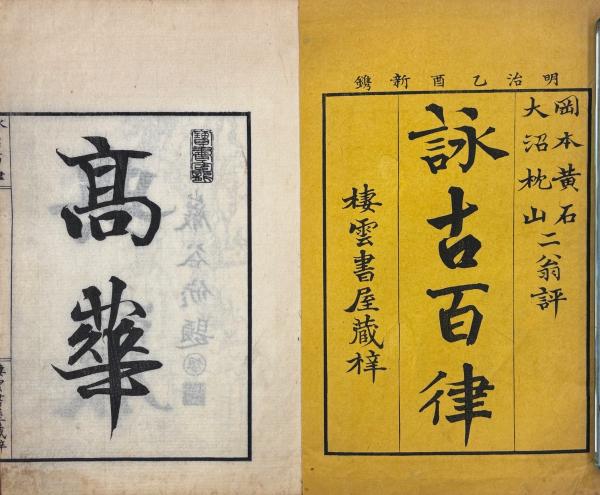 明治乙酉新鐫
岡本黄石
大沼枕山
二翁評
詠古百律
棲雲書屋藏梓
髙華